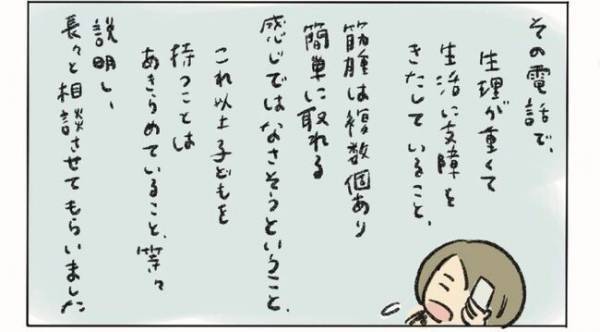 その電話で、
生理が重くて
生活に支障を
きたしていること、
筋腫は複数個あり
簡単に取れる
感じではなさそうということ、
これ以上子どもを
持つことは
あきらめていること、等々
説明し、
長々と相談させてもらいました